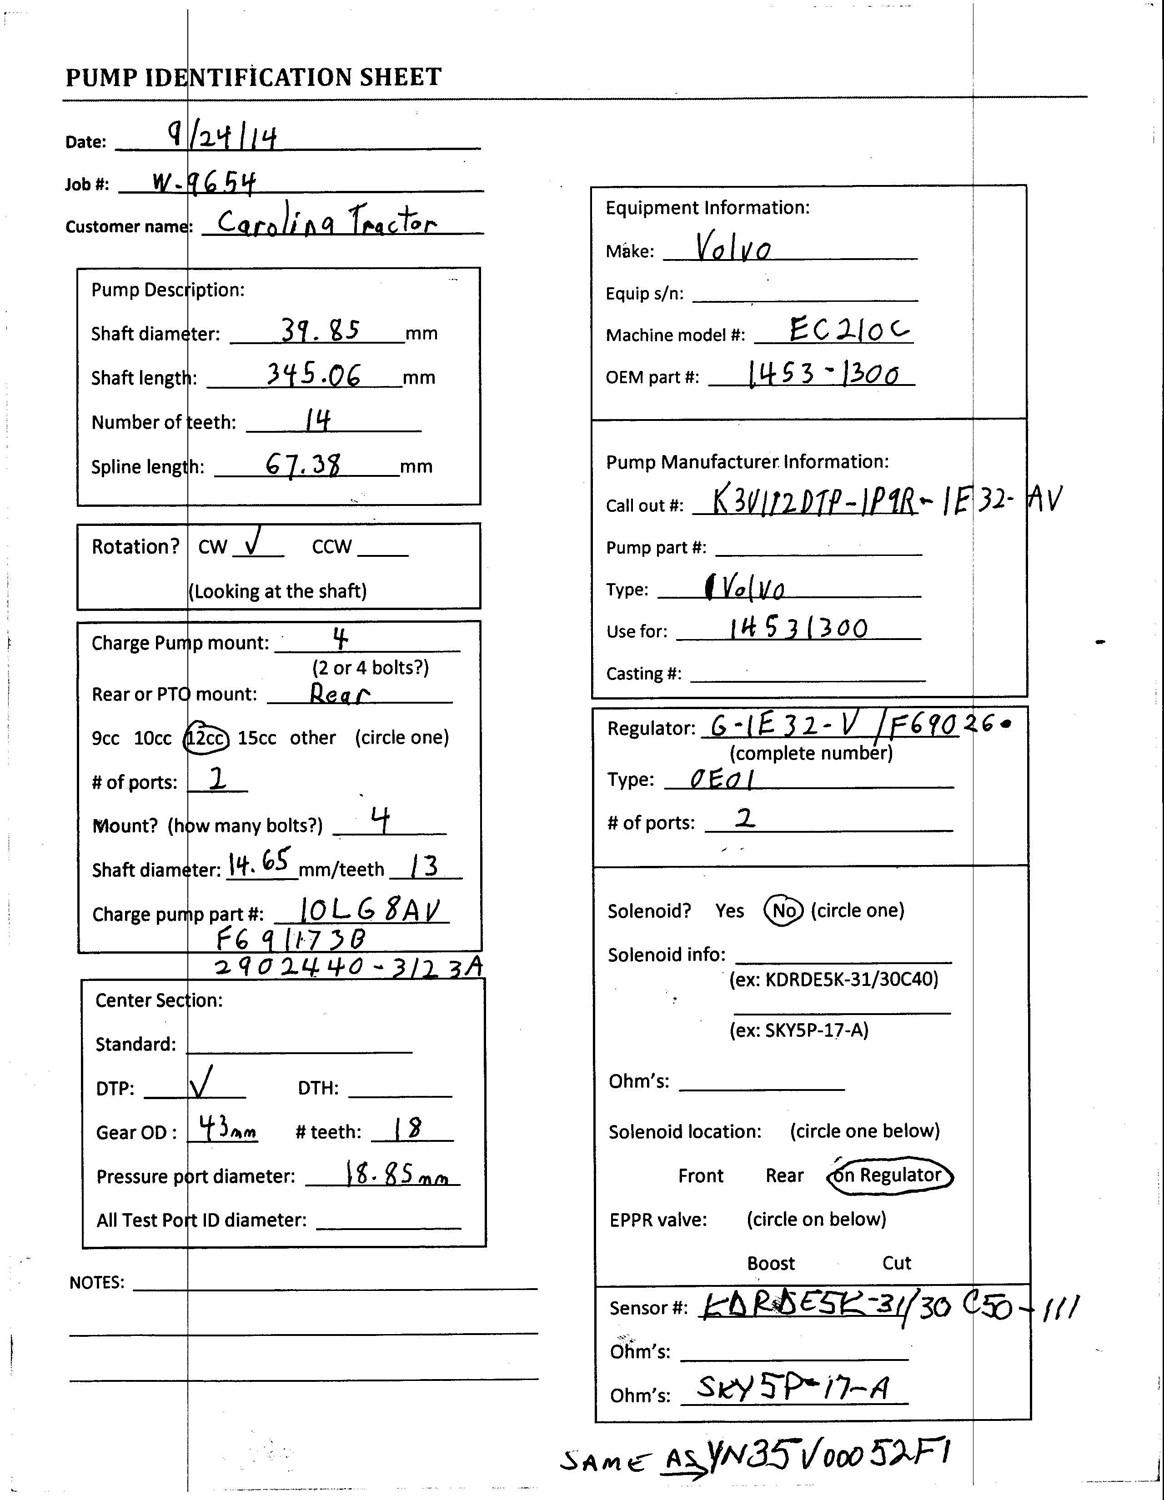 PUMP IDENTIFICATION SHEET
Date: 9/24/14
Job #: W-9654
Customer name: Carolina Tractor
Pump Description:
Shaft diameter: 39.85 mm
Shaft length: 345.06 mm
Number of teeth: 14
Spline length: 67.38 mm
Rotation? CW √ CCW
(Looking at the shaft)
Charge Pump mount: 4
(2 or 4 bolts?)
Rear or PTO mount: Rear
9cc 10cc 12cc 15cc other (circle one)
# of ports: 2
Mount? (how many bolts?) 4
Shaft diameter: 14.65 mm/teeth 13
Charge pump part #: 10LG8AV
F691173B
2902440-3123A
Center Section:
Standard:
DTP: √ DTH:
Gear OD : 43mm # teeth: 18
Pressure port diameter: 18.85mm
All Test Port ID diameter:
NOTES:
Equipment Information:
Make: Volvo
Equip s/n:
Machine model #: EC210C
OEM part #: 1453-1300
Pump Manufacturer Information:
Call out #: K3V112DTP-1P9R-1E32-AV
Pump part #:
Type: Volvo
Use for: 14531300
Casting #:
Regulator: G-1E32-V/F69026
(complete number)
Type: 0E01
# of ports: 2
Solenoid? Yes No (circle one)
Solenoid info:
(ex: KDRDE5K-31/30C40)
(ex: SKY5P-17-A)
Ohm's:
Solenoid location: (circle one below)
Front Rear on Regulator
EPPR valve: (circle on below)
Boost Cut
Sensor #: KDRDE5K-31/30 C50-111
Ohm's:
Ohm's: SKY5P-17-A
SAME AS YN35V00052F1